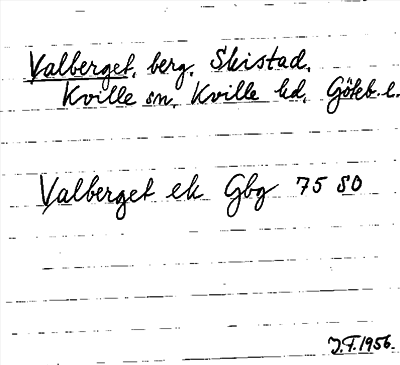 Valberget, berg, Skistad,
Kville sn, Kville hd, Göteb. l.
Valberget ek Gbg 75 SO
J.F. 1956.